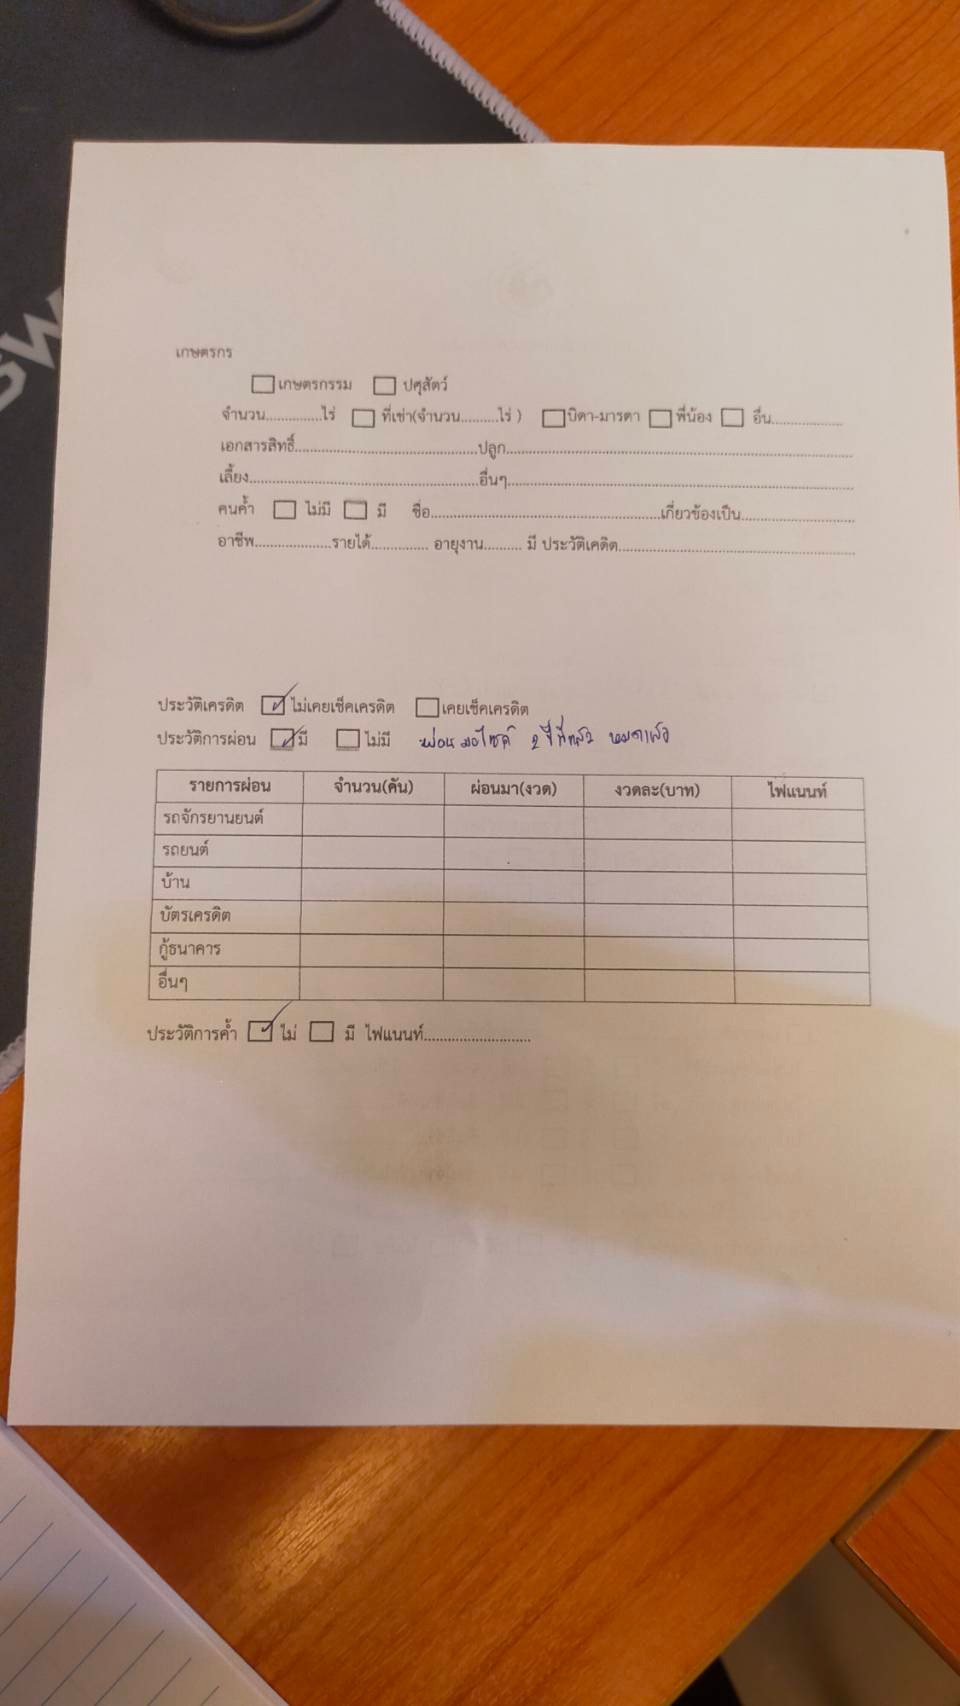 เกษตรกร
☐ เกษตรกรรม ☐ ปศุสัตว์
จำนวน..............ไร่ ☐ ที่เช่า(จำนวน..........ไร่ ) ☐ บิดา-มารดา ☐ พี่น้อง ☐ อื่น...................
เอกสารสิทธิ์................................................ปลูก...........................................................................................
เลี้ยง.............................................................อื่นๆ...........................................................................................
คนค้ำ ☐ ไม่มี ☐ มี ชื่อ.............................................................เกี่ยวข้องเป็น..............................
อาชีพ....................รายได้............... อายุงาน.......... มี ประวัติเคดิต...............................................................
ประวัติเครดิต ☑ ไม่เคยเช็คเครดิต ☐ เคยเช็คเครดิต
ประวัติการผ่อน ☑ มี ☐ ไม่มี ผ่อนมอไซค์ 2 ปีที่แล้ว หมดแล้ว
รายการผ่อน จำนวน(คัน) ผ่อนมา(งวด) งวดละ(บาท) ไฟแนนท์
รถจักรยานยนต์
รถยนต์
บ้าน
บัตรเครดิต
กู้ธนาคาร
อื่นๆ
ประวัติการค้ำ ☑ ไม่ ☐ มี ไฟแนนท์...........................